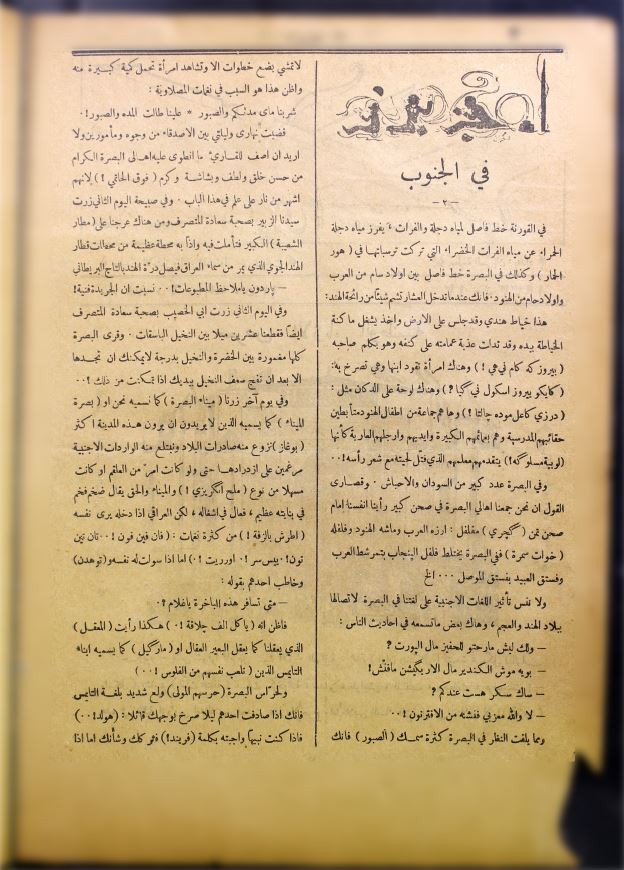 في الجنوب
- ٢ -
في القورنة خط فاصل لمياه دجلة والفرات يفرز مياه دجلة
الحمراء عن مياه الفرات الخضراء التي تركت ترسباتها في ( هور
الحمار ) وكذلك في البصرة خط فاصل بين اولاد سام من العرب
واولاد حام من الهنود . فانك عندما تدخل العشار تشم شيئاً من رائحة الهند :
هذا خياط هندي وقد جلس على الارض واخذ يشغل ماكنة
الخياطة بيده وقد تدلت عذبة عمامته على كتفه وهو يكلم صاحبه
( بيروز كه كام في هي ! ) وهناك امرأة تقود ابنها وهي تصرخ به :
( كايكو بيروز اسكول في كيا ? ) وهناك لوحة على الدكان مثل :
( درزي كاعل موده چالتا ! ) وها هم جماعة من اطفال الهنود متأبطين
حقائبهم المدرسية وهم بعمائمهم الكبيرة وايديهم وارجلهم العارية كأنها
( لوبية مسلوگه ! ) يتقدمهم معلمهم الذي فتل لحيته مع شعر رأسه ! ٠٠
وفي البصرة عدد كبير من السودان والاحباش . وقصارى
القول ان نحن جمعنا اهالي البصرة في صحن كبير رأينا انفسنا امام
صحن تمن ( گچري ) مقلقل : ارزه العرب وماشه الهنود وفلفله
( خوات سمرة ) ففي البصرة يختلط فلفل البنجاب بتمر شط العرب
وفستق العبيد بفستق الموصل ٠٠٠ الخ
ولا ننس تأثير اللغات الاجنبية على لغتنا في البصرة لاتصالها
ببلاد الهند والعجم ، وهاك بعض ما تسمعه في احاديث الناس :
— ولك ليش مارحتو للحفيز مال البورت ?
— بويه موش الكندير مال الاريگيشن مافنش !
— ساك سكر هست عندكم ?
— لا والله معزبي ففشته من الافترنون ! ٠٠
ومما يلفت النظر في البصرة كثرة سمك ( الصبور ) فانك
لاتمشي بضع خطوات الا وتشاهد امرأة تحمل كمية كبيرة منه
واظن هذا هو السبب في نغمات المصلاوية :
شربنا ماى مدنكم والصبور * علينا طالت المده والصبور ! ٠
قضيت نهاري وليالي بين الاصدقاء من وجوه ومأمورين ولا
اريد ان اصف للقاريء ما انطوى عليه اهالى البصرة الكرام
من حسن خلق ولطف وبشاشة وكرم ( فوق الحاتمي ! ) لانهم
اشهر من نار على علم في هذا الباب . وفي صبيحة اليوم الثاني زرت
سيدنا الزبير بصحبة سعادة المتصرف ومن هناك عرجنا على ( مطار
الشعيبة ) الكبير فتأملت فيه واذا به محطة عظيمة من محطات قطار
الهند الجوي الذي يمر من سماء العراق فيصل درة الهند بالتاج البريطاني
— پاردون ياملاحظ المطبوعات ! ٠٠ نسيت ان الجريدة فنية !
وفي اليوم الثاني زرت ابي الخصيب بصحبة سعادة المتصرف
ايضاً فقطعنا عشرين ميلا بين النخيل الباسقات . وقرى البصرة
كلها مغمورة بين الخضرة والنخيل بدرجة لايمكنك ان تجدها
الا بعد ان تفج سعف النخيل بيديك اذا تمكنت من ذلك ? ٠٠
وفي يوم آخر زرنا ( ميناء البصرة ) كما نسميه نحن او ( بصرة
الميناء ) كما يسميه الذين لا يريدون ان يرون هذه المدينة اكثر
( بوغاز ) نزوع منه صادرات البلاد ونبتلع منه الواردات الاجنبية
مرغمين على ازدرادها حتى ولو كانت امر من العلقم او كانت
مسهلا من نوع ( ملح انگريزي ! ) والميناء والحق يقال ضخم فخم
في بنايته عظيم ، فعال في اشغاله ، لكن العراقي اذا دخله يرى نفسه
( اطرش بالزفة ! ) من كثرة نغمات : ( فان فين فون ! ٠٠ تان نين
تون ! ٠ ييس سر ! ٠ اوررريت ! ٠ ) اما اذا سولت له نفسه و ( توهدن )
وخاطب احدهم بقوله :
— متى تسافر هذه الباخرة ياغلام ? ٠
فاظن انه ( ياكل الف جلاقة ! ٠ ) هكذا رأيت ( المعقل )
الذي يعقلنا كما يعقل البعير العقال او ( مارگيل ) كما يسميه ابناء
التايمس الذين ( نلعب نفسهم من الفلوس ! ٠٠ )
ولحراس البصرة ( حرسهم المولى ) ولع شديد بلغة التايمس
فانك اذا صادفت احدهم ليلا صرخ بوجهك قائلا : ( هولد ! ٠٠ )
فاذا كنت نبيهاً واجبته بكلمة ( فريند ? ) فتركك وشأنك اما اذا